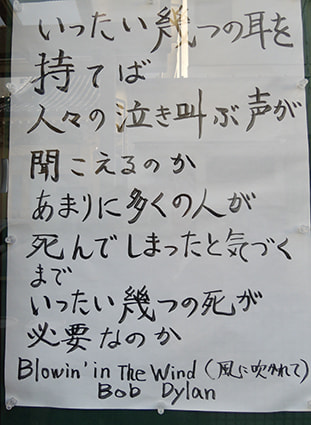 いったい幾つの耳を
持てば
人々の泣き叫ぶ声が
聞こえるのか
あまりに多くの人が
死んでしまったと気づく
まで
いったい幾つの死が
必要なのか
Blowin' in The Wind (風に吹かれて)
Bob Dylan